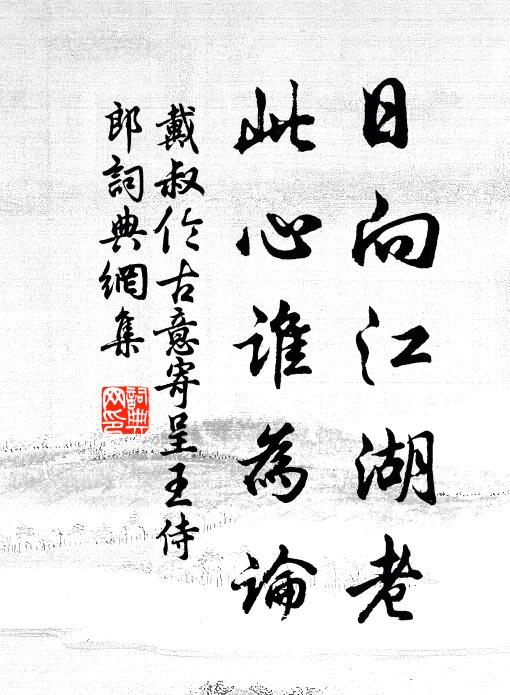 日向江湖老
此心谁為論
戴叔伦古意寄呈王侍
郎詞典網集
詞典网印